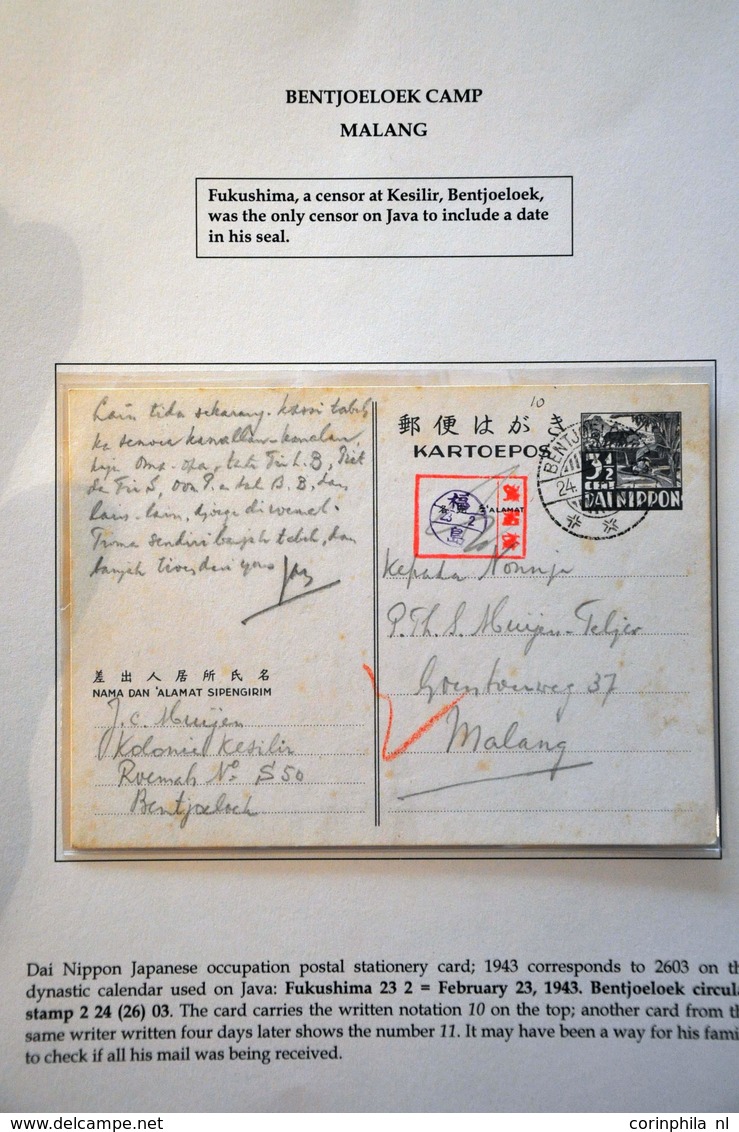 BENTJOELOEK CAMP
MALANG
Fukushima, a censor at Kesilir, Bentjoeloek,
was the only censor on Java to include a date
in his seal.
Lain tida sekarang. Kassi tabeh
ka semoea kanallan-kanalan,
Oma-opa,
lain-lain,
Trima sendiri banjak tabeh, dan
banjak
差出人居所氏名
NAMA DAN 'ALAMAT SIPENGIRIM
J. C. Muijen
Kolonie Kesilir
Roemah No S50
Bentjoeloek
10
郵便はがき
KARTOEPOS
BENTJOE
24.
3½
CENT
DAI NIPPON
福
23 2
島
'ALAMAT
Kepada Nonnja
P. Th. S. Muijen-Teljer
37
Malang
Dai Nippon Japanese occupation postal stationery card; 1943 corresponds to 2603 on th
dynastic calendar used on Java: Fukushima 23 2 = February 23, 1943. Bentjoeloek circul
stamp 2 24 (26) 03. The card carries the written notation 10 on the top; another card from th
same writer written four days later shows the number 11. It may have been a way for his fami
to check if all his mail was being received.
www.delcampe.net
corinphila nl